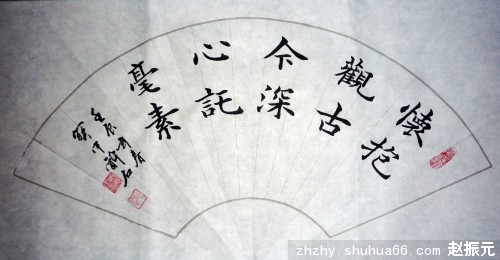 懷抱
觀古
今深
心託
毫素
壬辰
zhzhy.shuhua66.com 赵振元